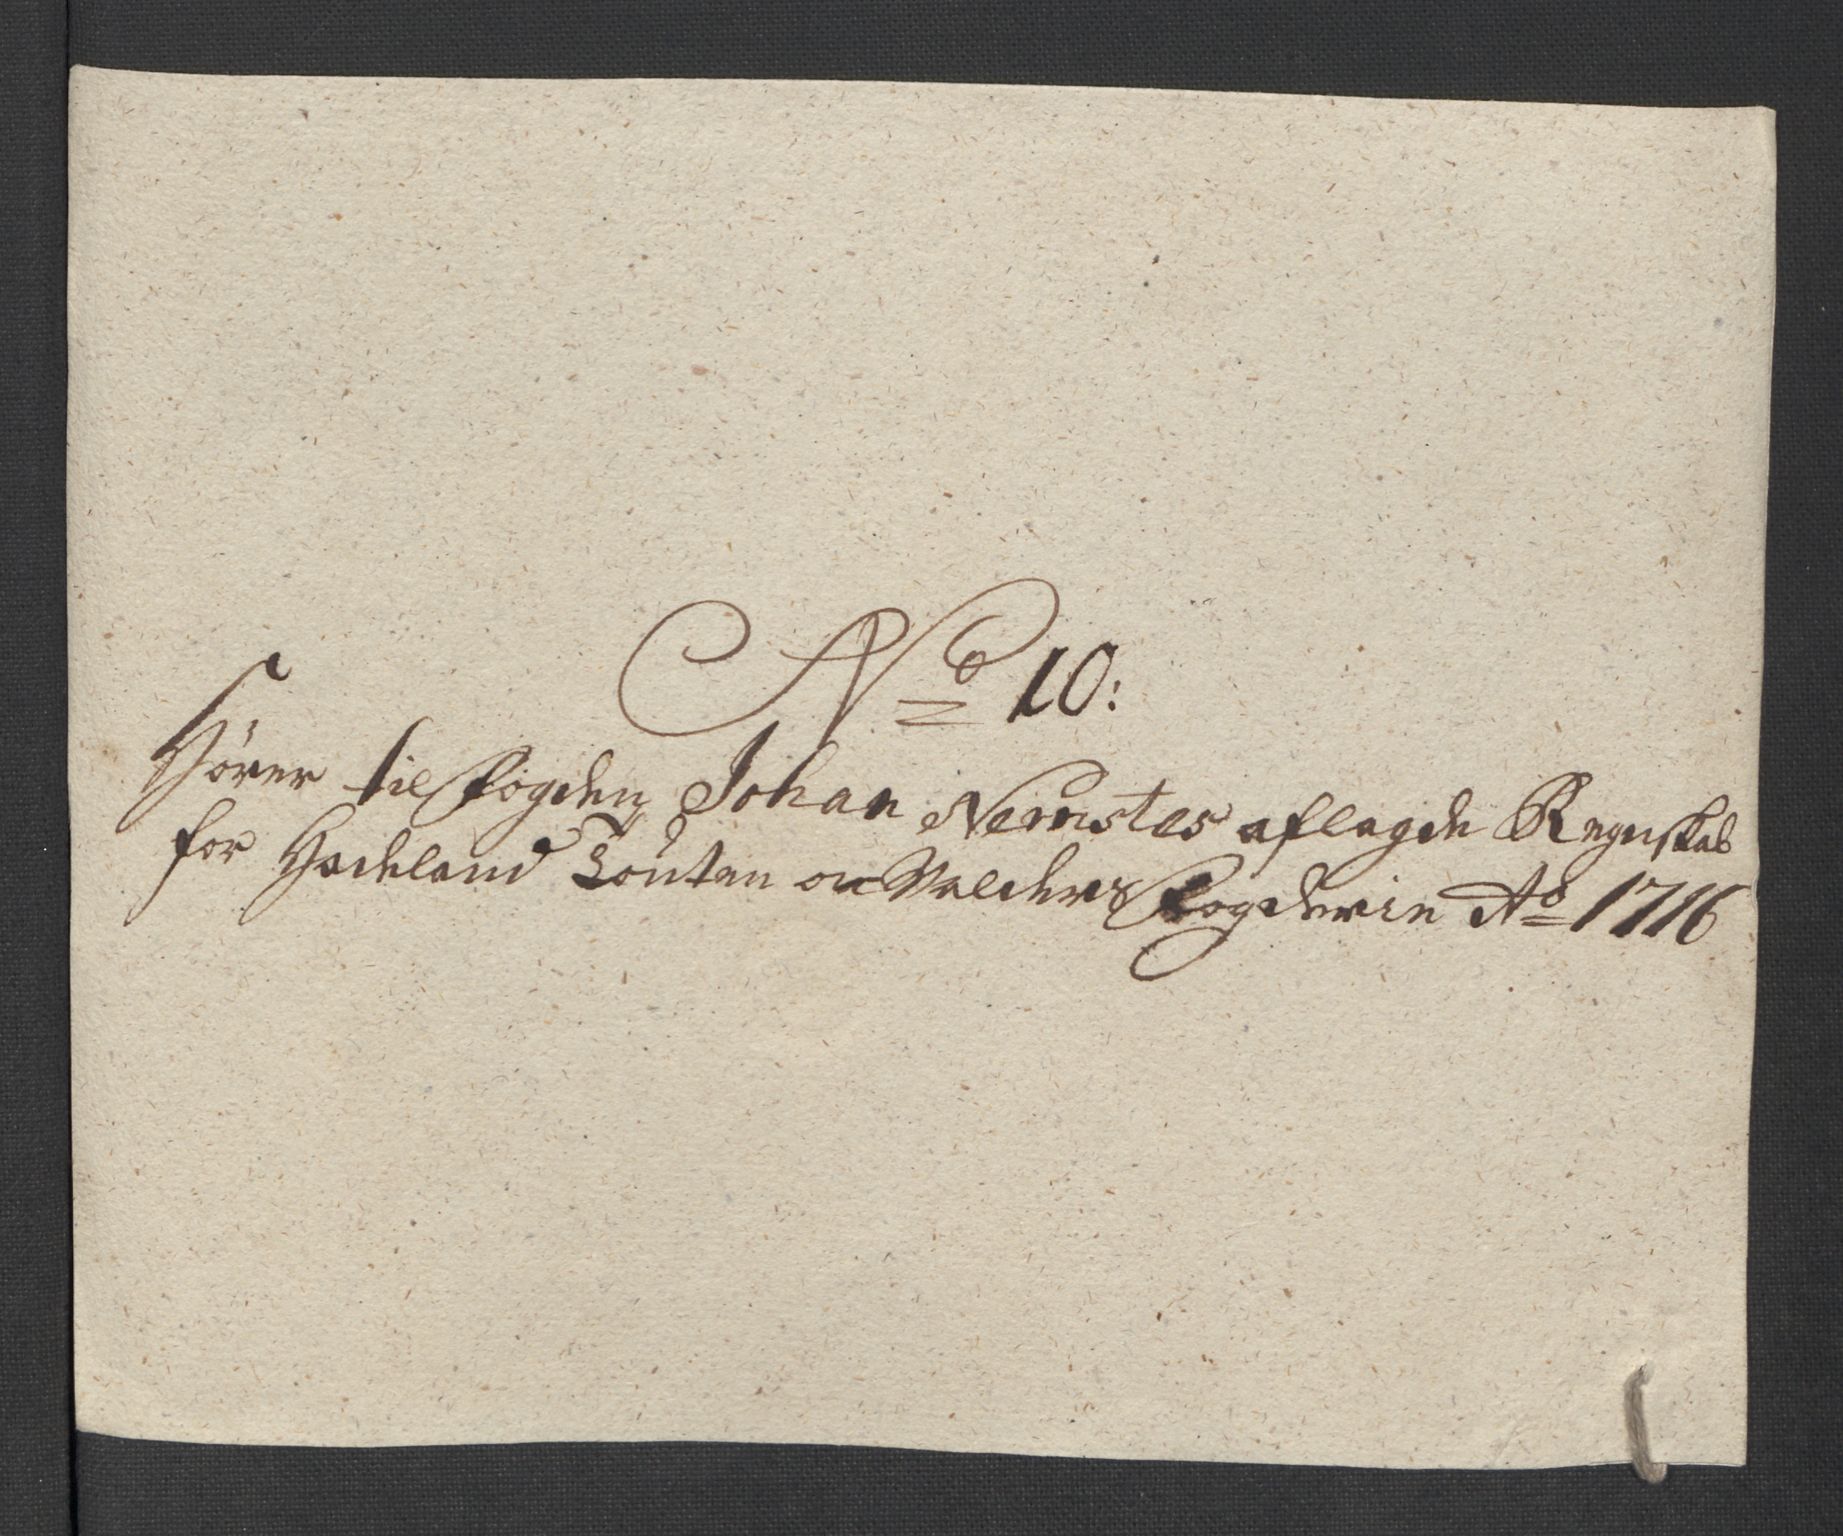 No 10:
Hörer til fogden Johan Nernstes aflagde Regnskab
for Hadeland Touten oc Valders fogderie Ao 1716